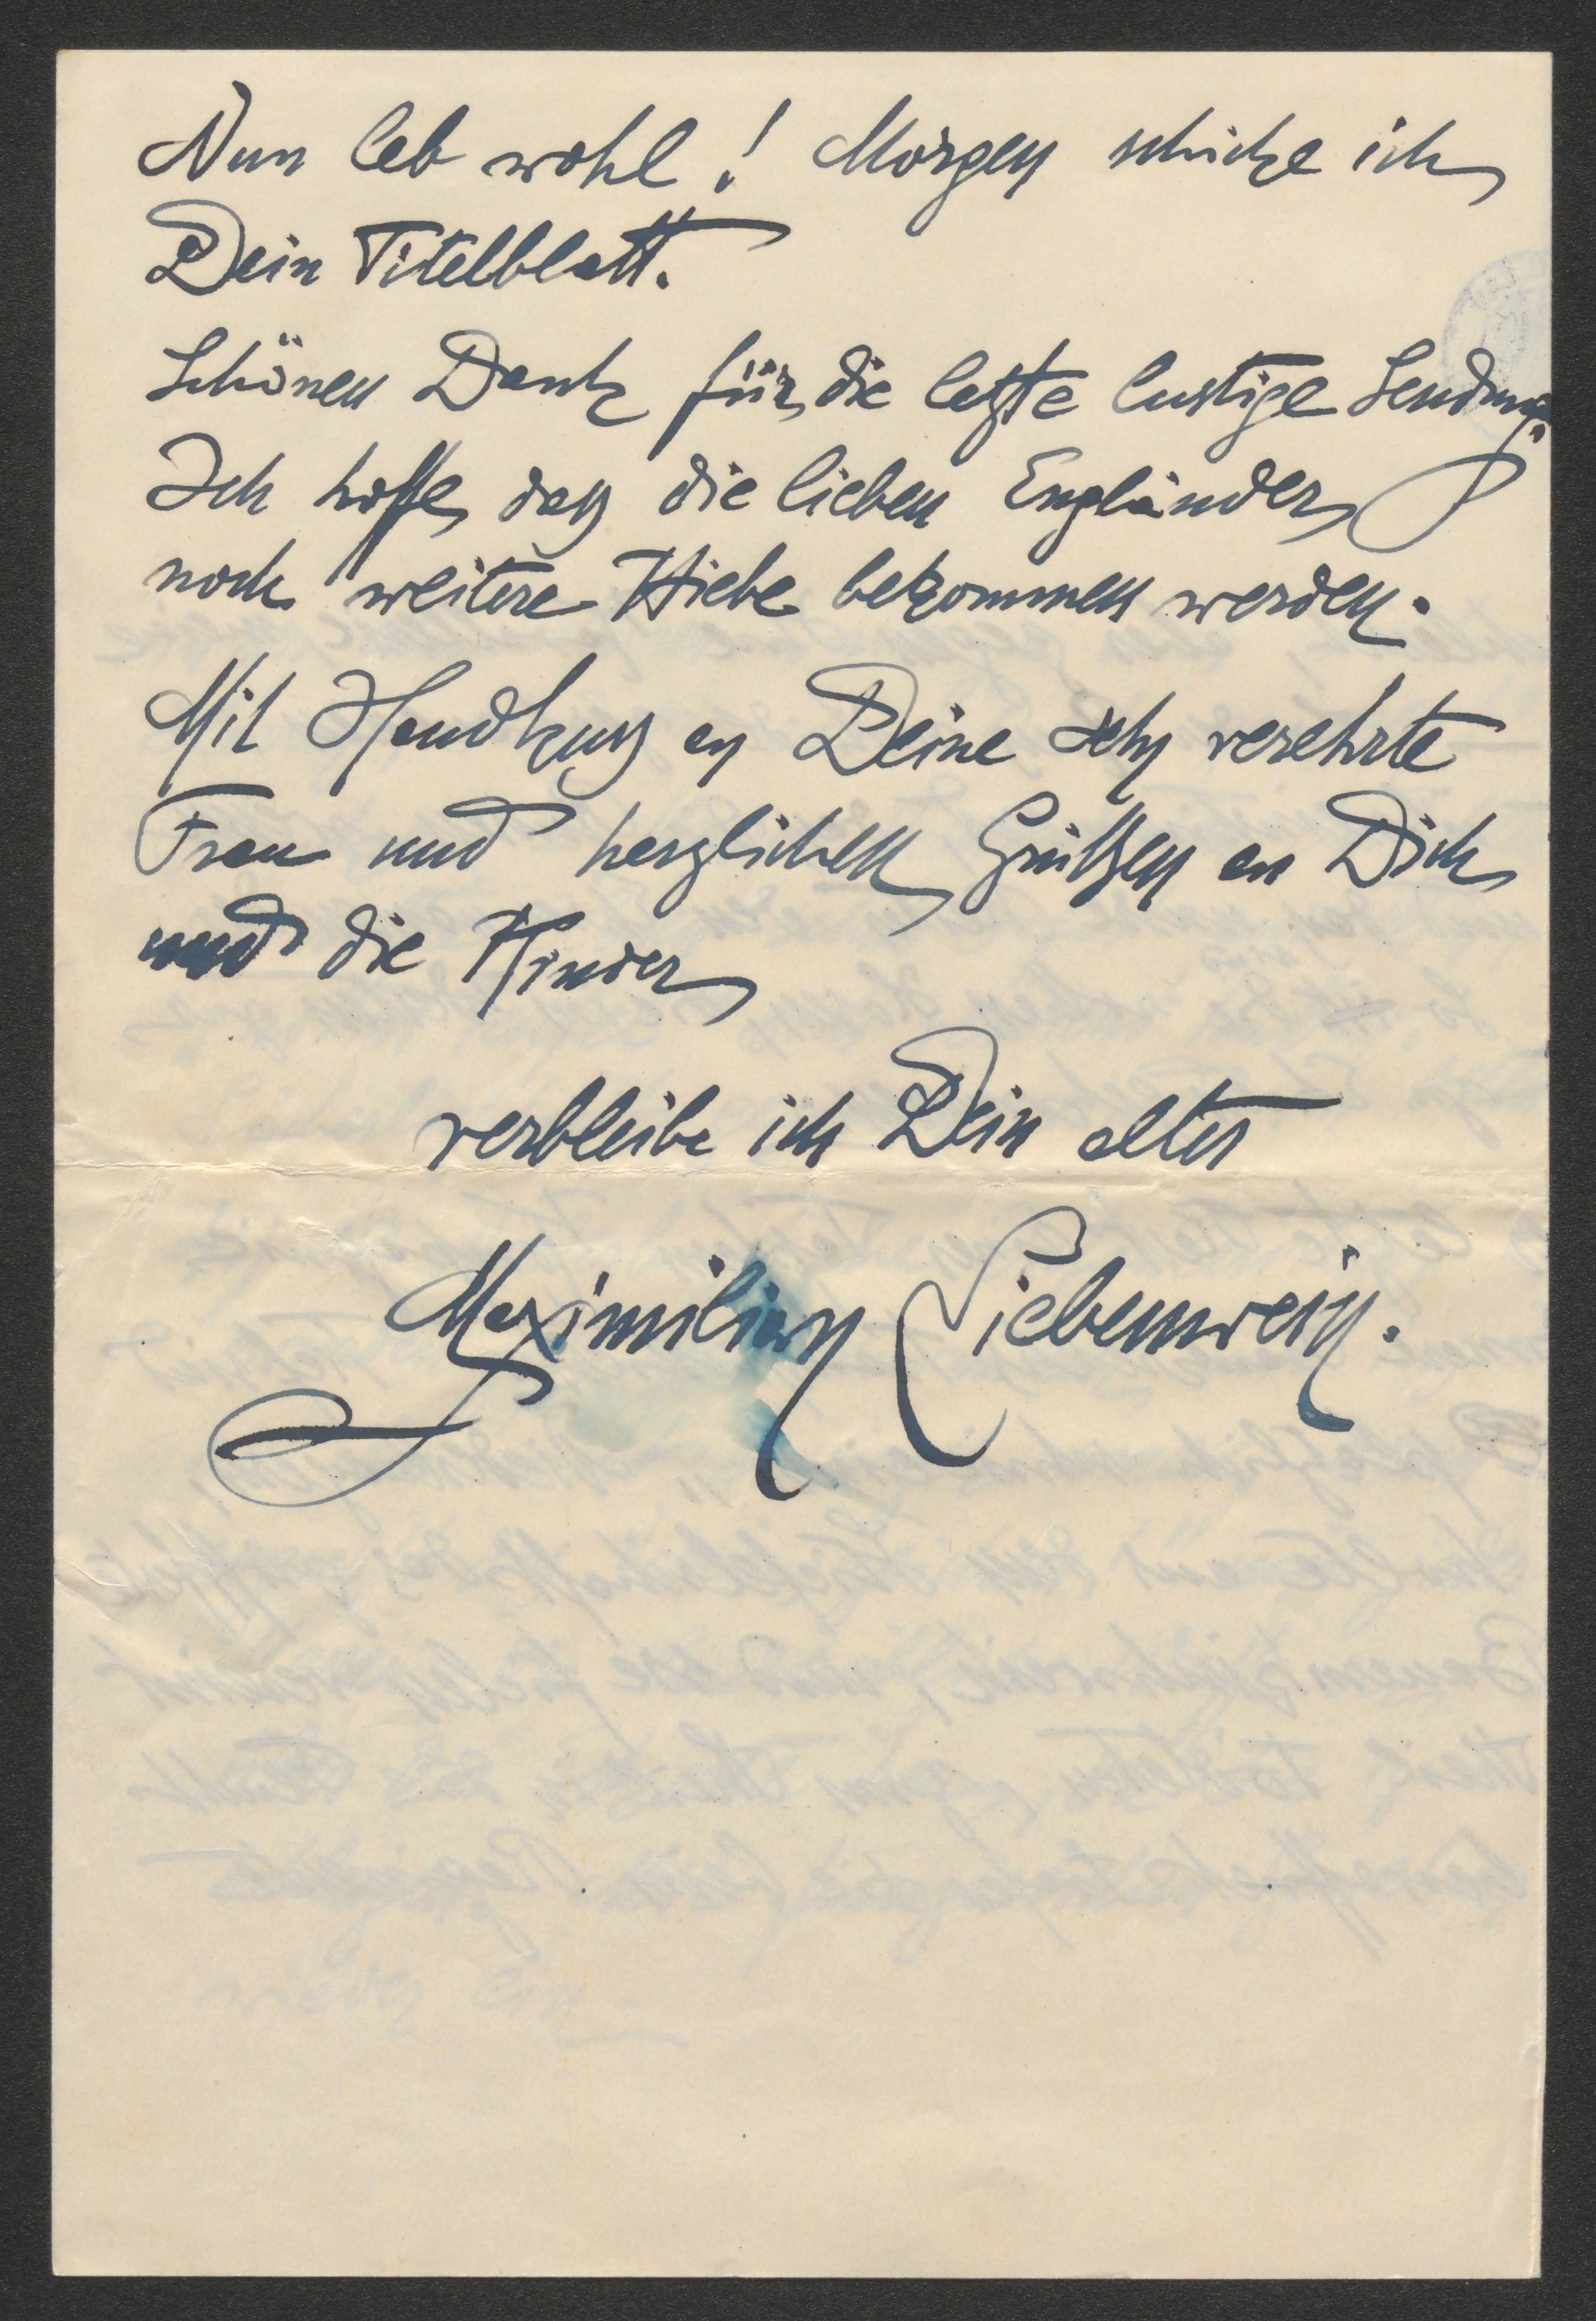 Nun leb wohl! Morgen schicke ich
Dein Titelblatt.
Schönen Dank für die letzte lustige Sendung.
Ich hoffe, daß die lieben Engländer
noch weitere Hiebe bekommen werden.
Mit Handkuß an Deine sehr verehrte
Frau und herzlichen Grüßen an Dich
und die Kinder
verbleibe ich Dein alter
Maximilian Liebenwein.